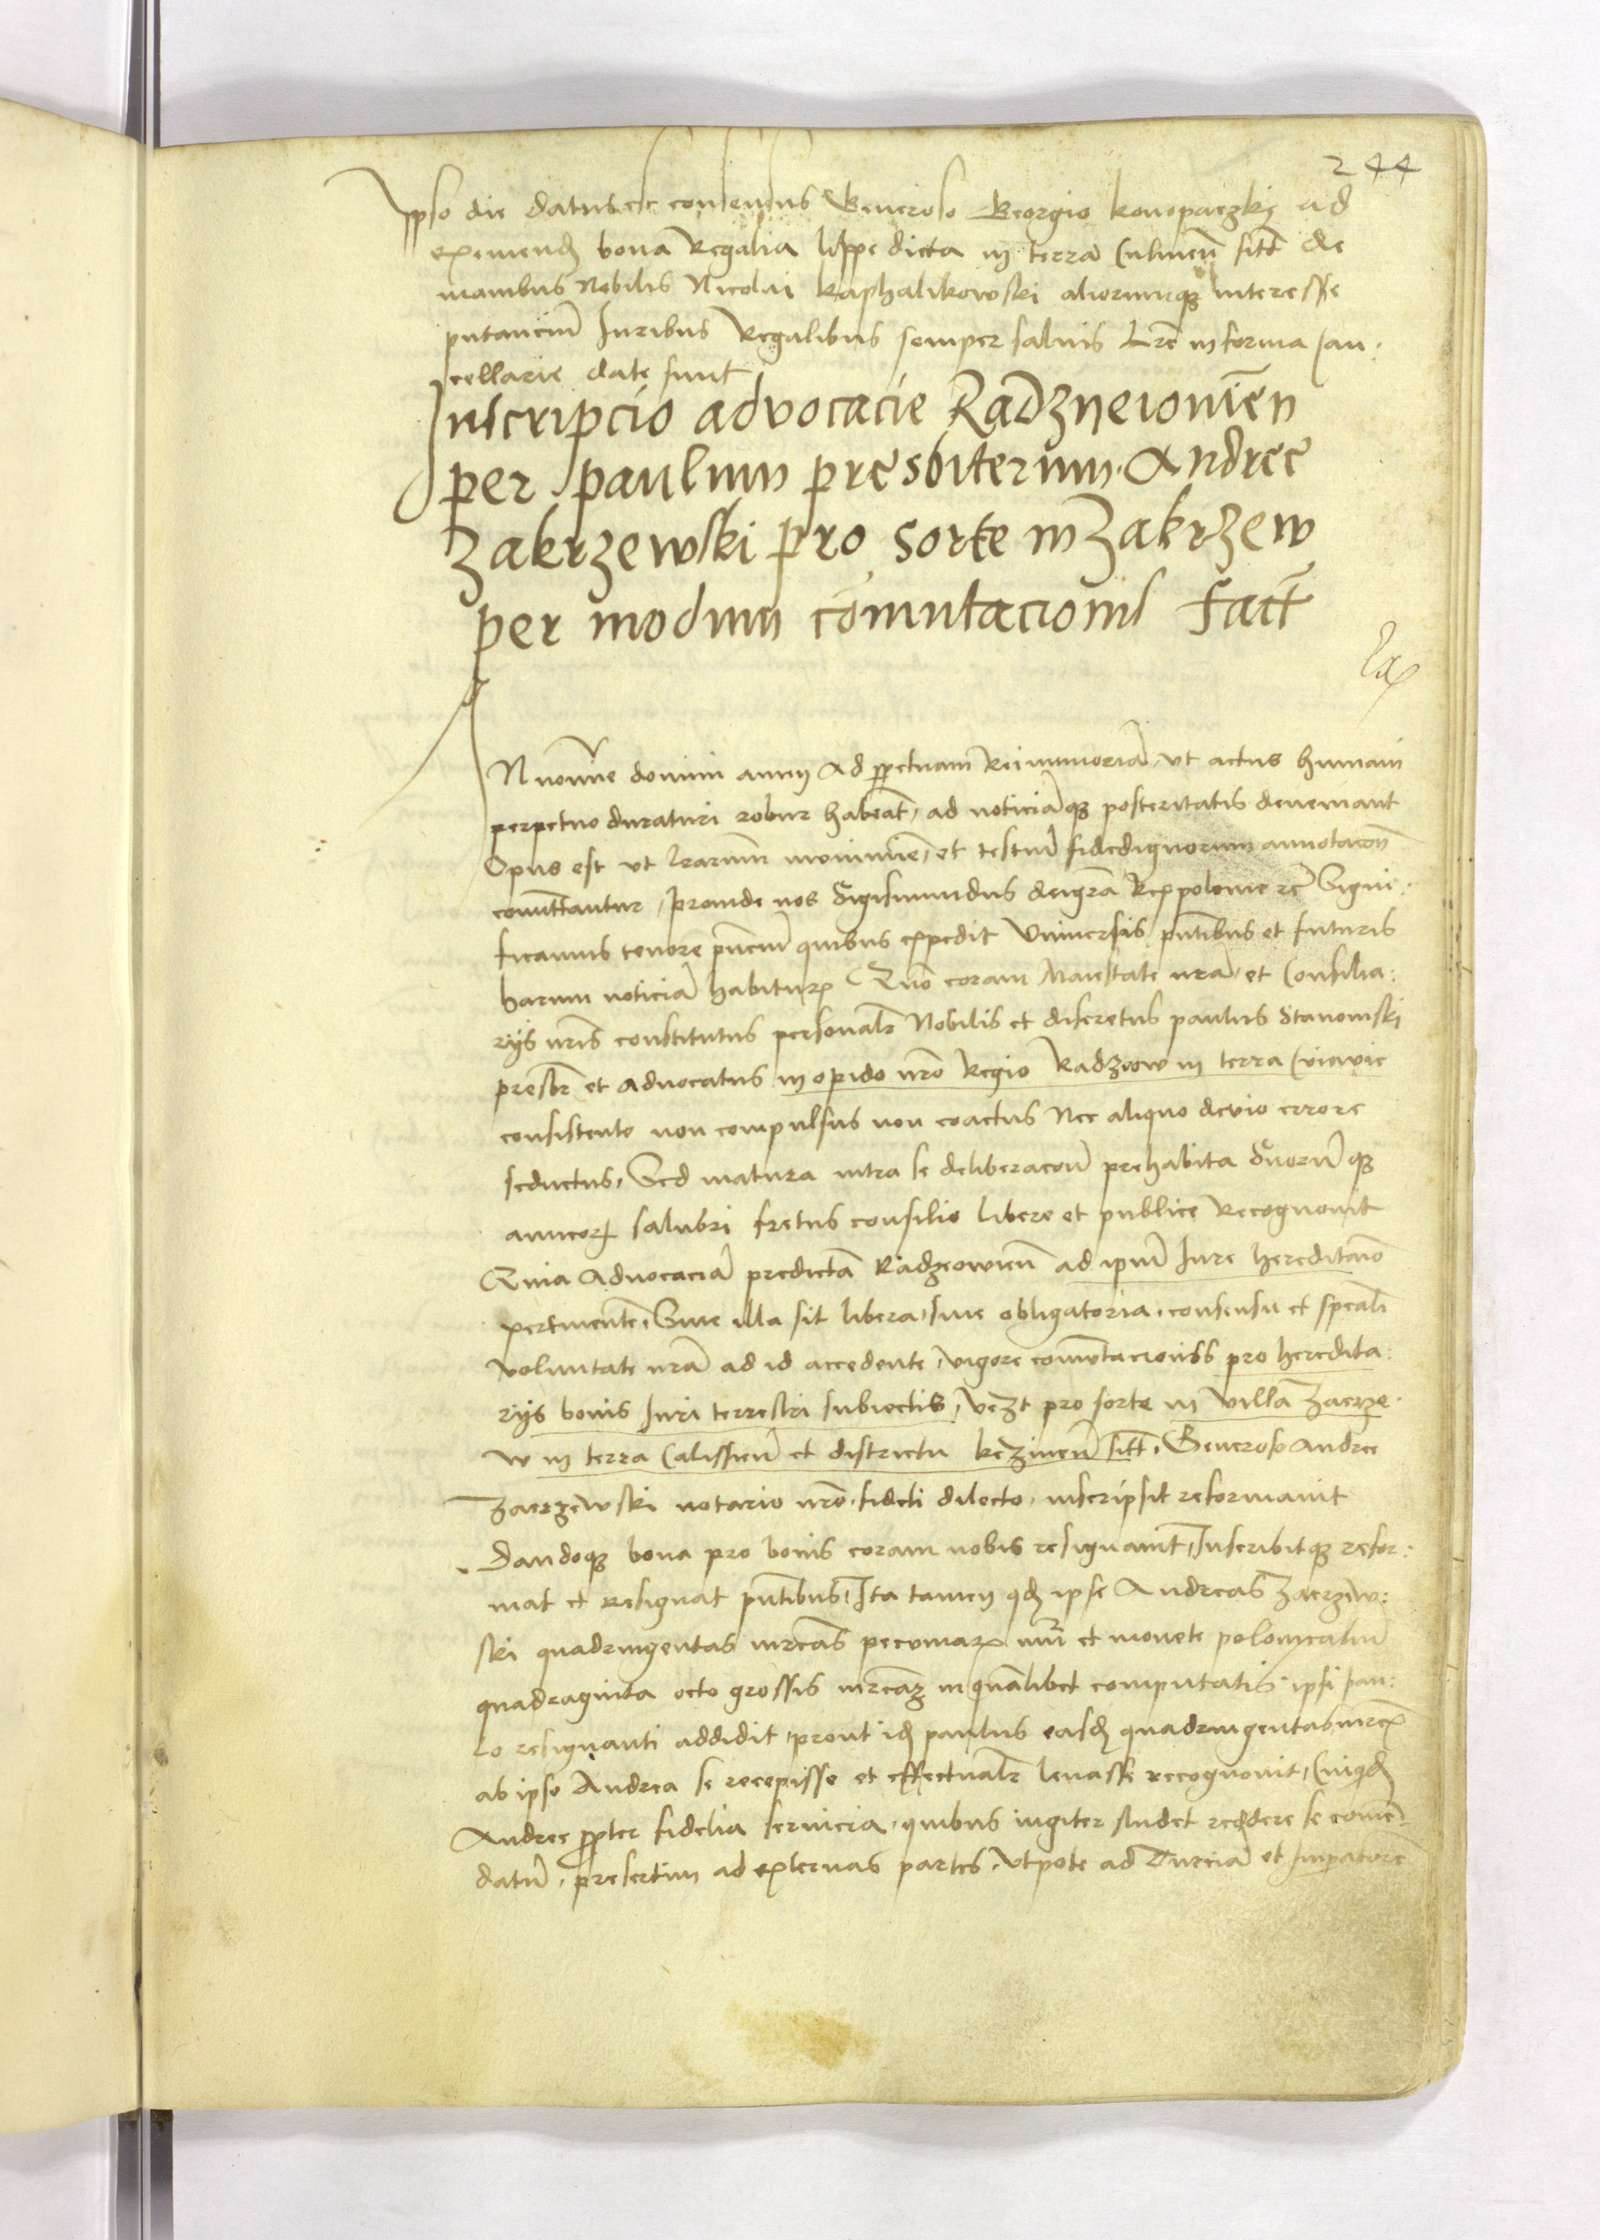 244
Ipso die datus est consensus Generoso Georgio konopaczki ad
exemend bona Regalia lippe dicta in terra Culmen̄ sitt de
manibus Nobilis Nicolai kaphalikowski aliorumq; interesse
putancium Iuribus Regalibus semper salvis Lrē in forma Can:
cellarie date sunt
Inscripcio advocacie Radzyeiouien̄
per paulum presbiterum Andree
Zakrzewski pro sorte in Zakrzew
per modum cōmutacionis fact̄
IN noīne domini amen Ad ppetuam Rei memoriā, ut actus humani
perpetuo duraturi robur habeāt, ad noticiāq; posteritatis deveniant
Opus est ut lrarum munimine, et testiū fidedignorum annotacōn
comittantur, proinde nos Sigismundus dei grā Rex polonie etc̄ Signi:
ficamus tenore pn̄ciū quibus expedit Universis pn̄tibus et futuris
harum noticiā habitur Quō coram Maiestate nrā, et Consilia:
rijs nr̄is constitutus personalr Nobilis et discretus paulus Stanomski
presbr et advocatus in opido nrō Regio Radzeow in terra Cuiavie
consistente non compulsus non coactus Nec aliquo devio errore
seductus, Sed matura intra se deliberacōn prehabita Suorū q;
amicor salubri fretus consilio libere et publice Recognovit
Quia Advocaciā predictā Radzeowien̄ ad ipm̄ Iure hereditario
pertinentē, Sive illa sit libera, sive obligatoria, consensu et speāli
voluntate nrā ad id accedente, vigore comutacioniss pro heredita:
rijs bonis Iuri terrestri subiectis, vczt pro sorte in villa Zacrze
w in terra Calissien̄ et districtu kczinen̄ sitt, Generoso Andree
Zacrzewski notario nrō fideli dilecto, inscripsit reformavit
Dandoq; bona pro bonis coram nobis resignavit, Inscribitq; refor:
mat et resignat pn̄tibus, Ita tamen qd ipse Andreas Zacrzew:
ski quadringentas mrcas pecuniar nūi et monete polonicaliū
quadraginta octo grossis mrcā in quālibet computatis ipsi pau:
lo resignanti addidit, prout id paulus easd quadringentas mrc
ab ipso Andrea se recepisse et effectualr levasse recognovit, Cuiqd
Andree ppter fidelia servicia, quibus iugiter studet reddere se comē
datū, presertim ad externas partes, utpote ad Turciā et Imparorē